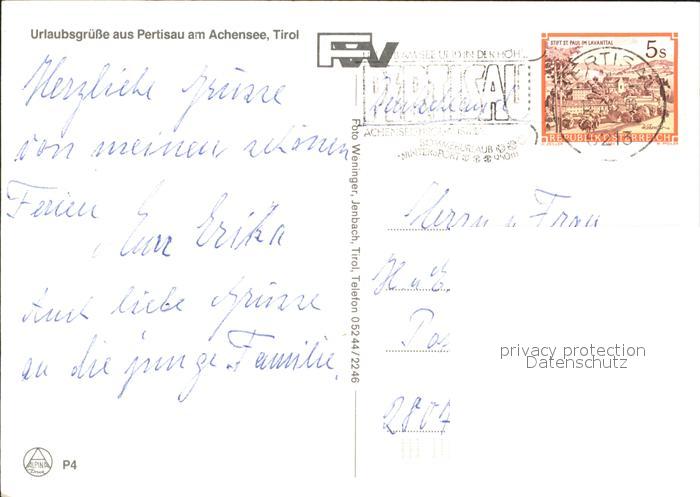 Urlaubsgrüße aus Pertisau am Achensee, Tirol
Herzliche Grüsse
von meinen schönen
Ferien
Eure Erika
Auch liebe Grüsse
an die junge Familie.
ALPINA
Druck
P4
Foto Weninger, Jenbach, Tirol, Telefon 05244/2246
PERTISAU
STIFT ST. PAUL IM LAVANTTAL
5 S
REPUBLIK ÖSTERREICH
PERTISAU
6213
Deutschland
Herrn u Frau
2807
privacy protection
Datenschutz